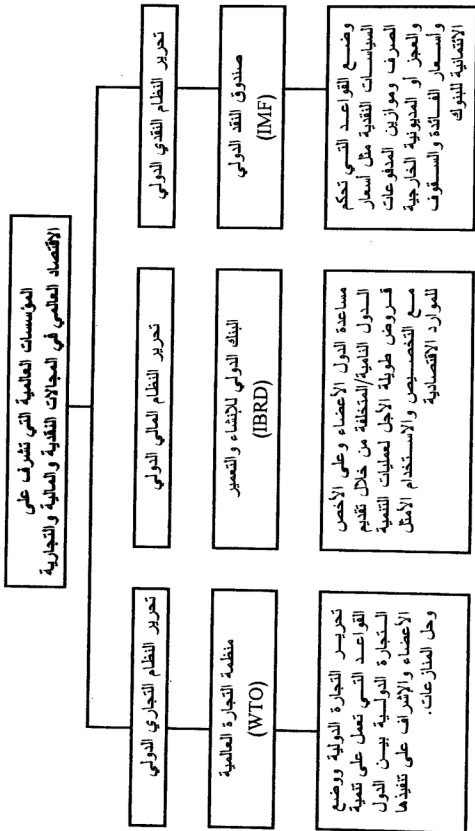 المؤسسات العالمية التي تشرف على
الاقتصاد العالمي في المجالات النقدية والمالية والتجارية
تحرير النظام النقدي الدولي
صندوق النقد الدولي
(IMF)
وضع القواعد التي تحكم
السياسات النقدية مثل أسعار
الصرف وموازين المدفوعات
والعجز أو المديونية الخارجية
وأسعار الفائدة والسقوف
الائتمانية للبنوك
تحرير النظام المالي الدولي
البنك الدولي للإنشاء والتعمير
(IBRD)
مساعدة الدول الأعضاء وعلى الأخص
الدول النامية/المتخلفة من خلال تقديم
قروض طويلة الأجل لعمليات التنمية
مع التخصيص والاستخدام الأمثل
للموارد الاقتصادية
تحرير النظام التجاري الدولي
منظمة التجارة العالمية
(WTO)
تحرير التجارة الدولية ووضع
القواعد التي تعمل على تنمية
التجارة الدولية بين الدول
الأعضاء والإشراف على تنفيذها
وحل المنازعات.